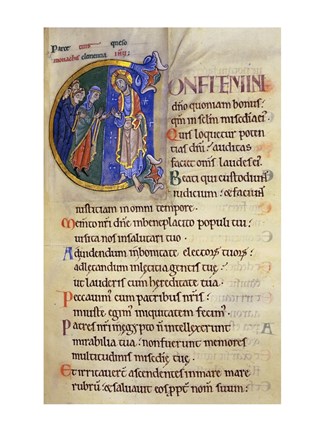 Parce tuis queso
monachis clementia ihū
CONFITEMINI
dño quoniam bonus:
qm̄ in sclm̄ misc̄dia ei'
Quis loquetur poten
tias dñi: auditas
faciet om̄s laudes ei'.
Beati qui custodiunt
iudicium: & faciunt
iusticiam in omni tempore.
Memento nr̄i dñe in beneplacito populi tui:
uisita nos in salutari tuo.
Ad uidendum in bonitate electorꝝ tuorꝝ:
ad letandum in leticia gentis tuę:
ut lauderis cum hereditate tua.
Peccauim' cum patribus nr̄is:
iniuste egim' iniquitatem fecim'.
Patres nr̄i in egypto ñ intellexerunt
mirabilia tua: non fuerunt memores
multitudinis misc̄dię tuę.
Et irritauert̄ ascendentes in mare mare
rubrū: & saluauit eos ꝓpt̄ nom̄ suum: